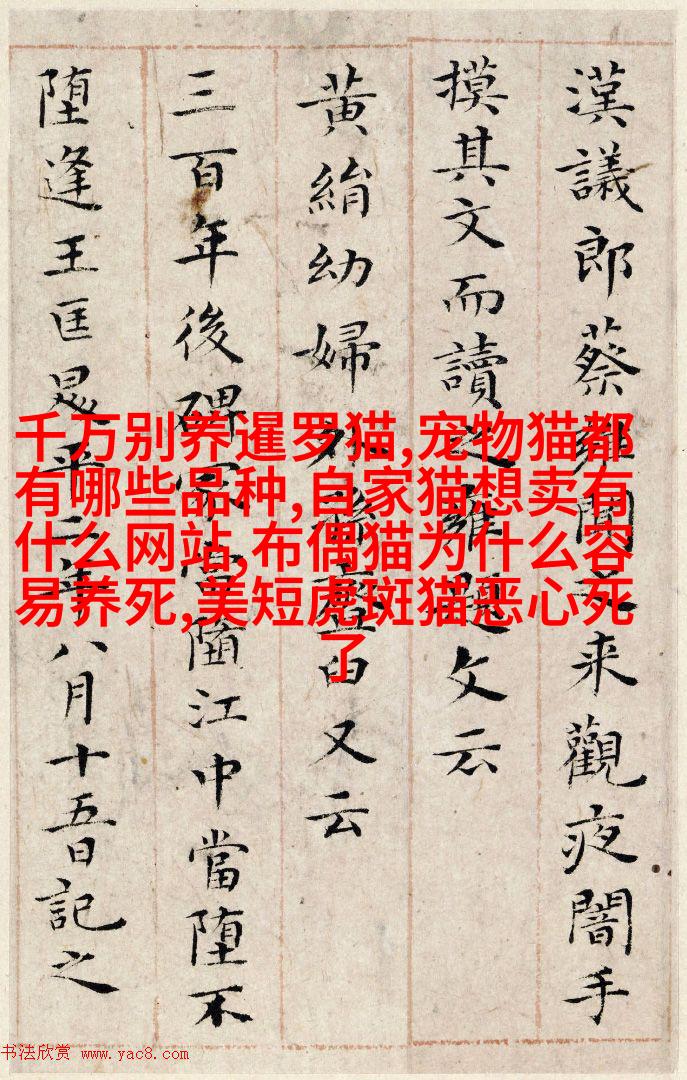 漢議郎蔡雍聞之来觀夜闇手
摸其文而讀之雍題文云
黃絹幼婦外孫韲臼又云
三百年後碑冢當墮江中當墮不
墮逢王匡昇平二年八月十五日記之
千万别养暹罗猫,宠物猫都
有哪些品种,自家猫想卖有
什么网站,布偶猫为什么容
易养死,美短虎斑猫恶心死
了
书法欣赏 www.yac8.com